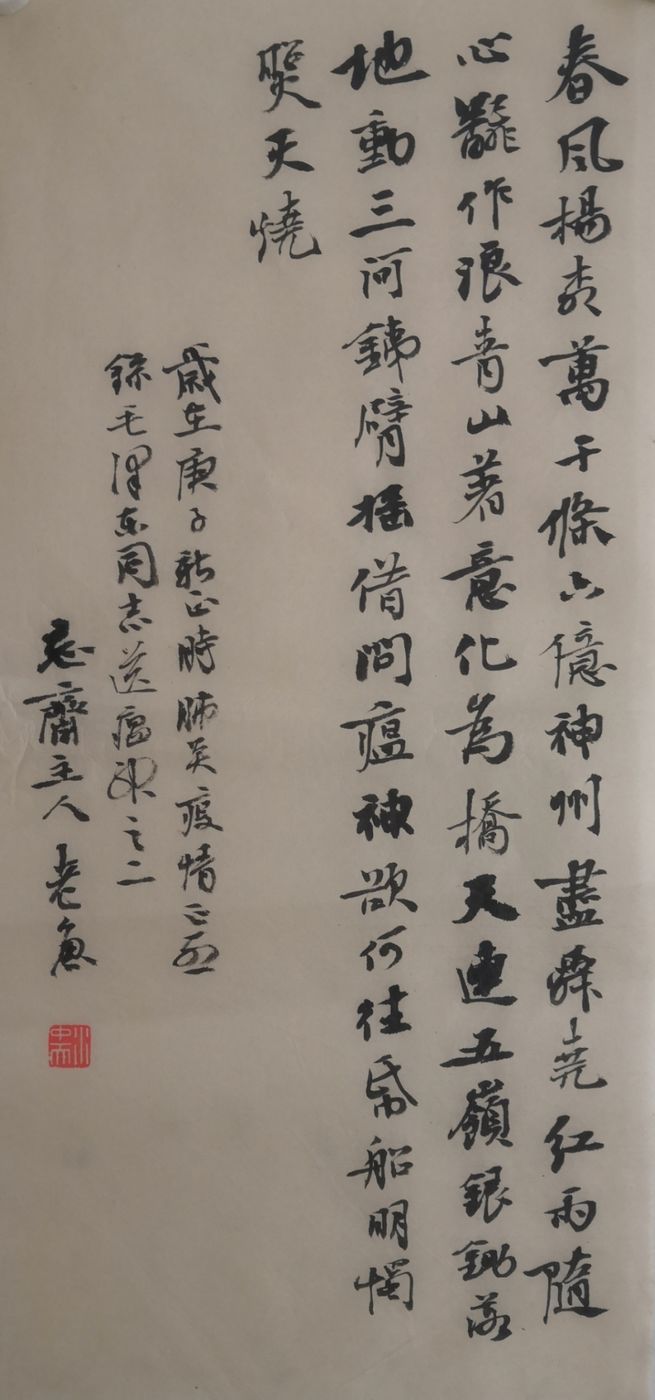 春風楊柳萬千條六億神州盡舜堯紅雨隨
心飜作浪青山著意化為橋天連五嶺銀鋤落
地動三河銕臂摇借問瘟神欲何往帋船明燭
照天燒
歲在庚子新正時肺炎疫情正烈
錄毛澤東同志送瘟神之二
齋主人老魚